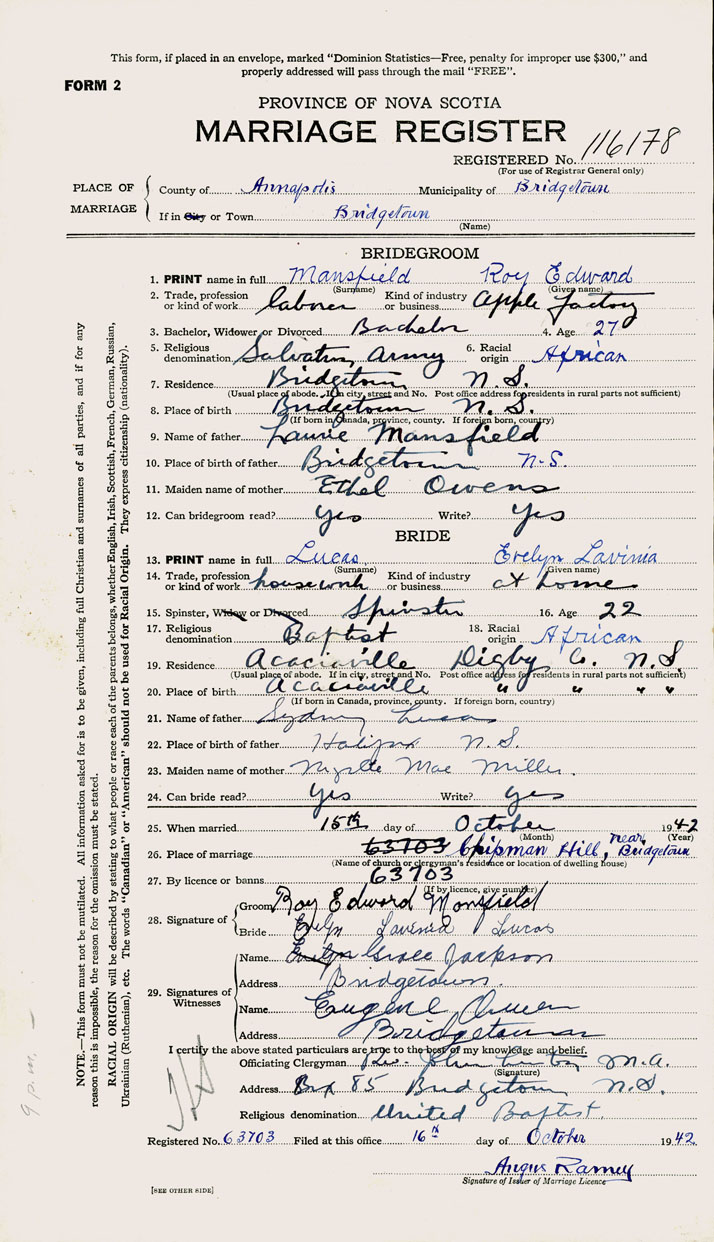 This form, if placed in an envelope, marked "Dominion Statistics—Free, penalty for improper use $300," and
properly addressed will pass through the mail "FREE".
FORM 2
PROVINCE OF NOVA SCOTIA
MARRIAGE REGISTER
REGISTERED No. 116178
(For use of Registrar General only)
PLACE OF MARRIAGE
County of Annapolis Municipality of Bridgetown
If in City or Town Bridgetown
(Name)
BRIDEGROOM
1. PRINT name in full Mansfield Roy Edward
(Surname) (Given name)
2. Trade, profession or kind of work laborer Kind of industry or business apple factory
3. Bachelor, Widower or Divorced Bachelor 4. Age 27
5. Religious denomination Salvation Army 6. Racial origin African
7. Residence Bridgetown N.S.
(Usual place of abode. If in city, street and No. Post office address for residents in rural parts not sufficient)
8. Place of birth Bridgetown N.S.
(If born in Canada, province, county. If foreign born, country)
9. Name of father Laurie Mansfield
10. Place of birth of father Bridgetown N.S.
11. Maiden name of mother Ethel Owens
12. Can bridegroom read? Yes Write? Yes
BRIDE
13. PRINT name in full Lucas Evelyn Lavinia
(Surname) (Given name)
14. Trade, profession or kind of work housework Kind of industry or business at home
15. Spinster, Widow or Divorced Spinster 16. Age 22
17. Religious denomination Baptist 18. Racial origin African
19. Residence Acaciaville Digby Co. N.S.
(Usual place of abode. If in city, street and No. Post office address for residents in rural parts not sufficient)
20. Place of birth Acaciaville " " " "
(If born in Canada, province, county. If foreign born, country)
21. Name of father Sydney Lucas
22. Place of birth of father Halifax N.S.
23. Maiden name of mother Myrtle Mae Miller.
24. Can bride read? Yes Write? Yes
25. When married 15th day of October 1942
(Month) (Year)
26. Place of marriage 63703 Chipman Hill, near Bridgetown
(Name of church or clergyman's residence or location of dwelling house)
27. By licence or banns 63703
(If by licence, give number)
28. Signature of
Groom Roy Edward Mansfield
Bride Evelyn Lavinia Lucas
29. Signatures of Witnesses
Name Evelyn Grace Jackson
Address Bridgetown.
Name Eugene Owen
Address Bridgetown
I certify the above stated particulars are true to the best of my knowledge and belief.
Officiating Clergyman Rev. M.A.
(Signature)
Address Box 85 Bridgetown N.S.
Religious denomination United Baptist.
Registered No. 63703 Filed at this office 16th day of October 1942
Angus Ramey
Signature of Issuer of Marriage Licence
[SEE OTHER SIDE]
NOTE.—This form must not be mutilated. All information asked for is to be given, including full Christian and surnames of all parties, and if for any
reason this is impossible, the reason for the omission must be stated.
RACIAL ORIGIN will be described by stating to what people or race each of the parents belongs, whether English, Irish, Scottish, French, German, Russian,
Ukrainian (Ruthenian), etc. The words "Canadian" or "American" should not be used for Racial Origin. They express citizenship (nationality).
9 p.m. —